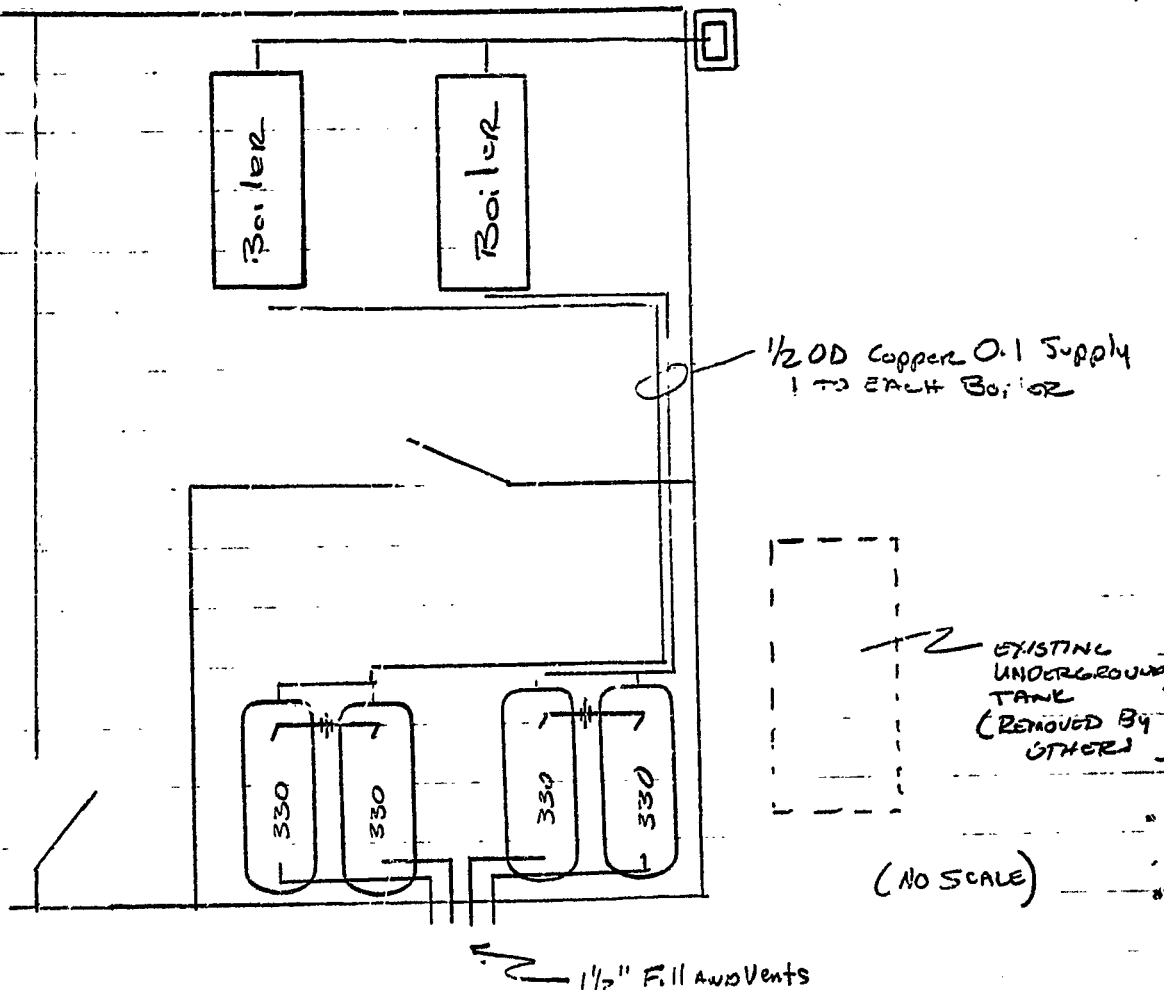 Boiler
Boiler
1/2 OD Copper Oil Supply
1 TO EACH Boiler
EXISTING
UNDERGROUND
TANK
(REMOVED By
OTHERS
330
330
330
330
(NO SCALE)
1 1/2" Fill AND Vents